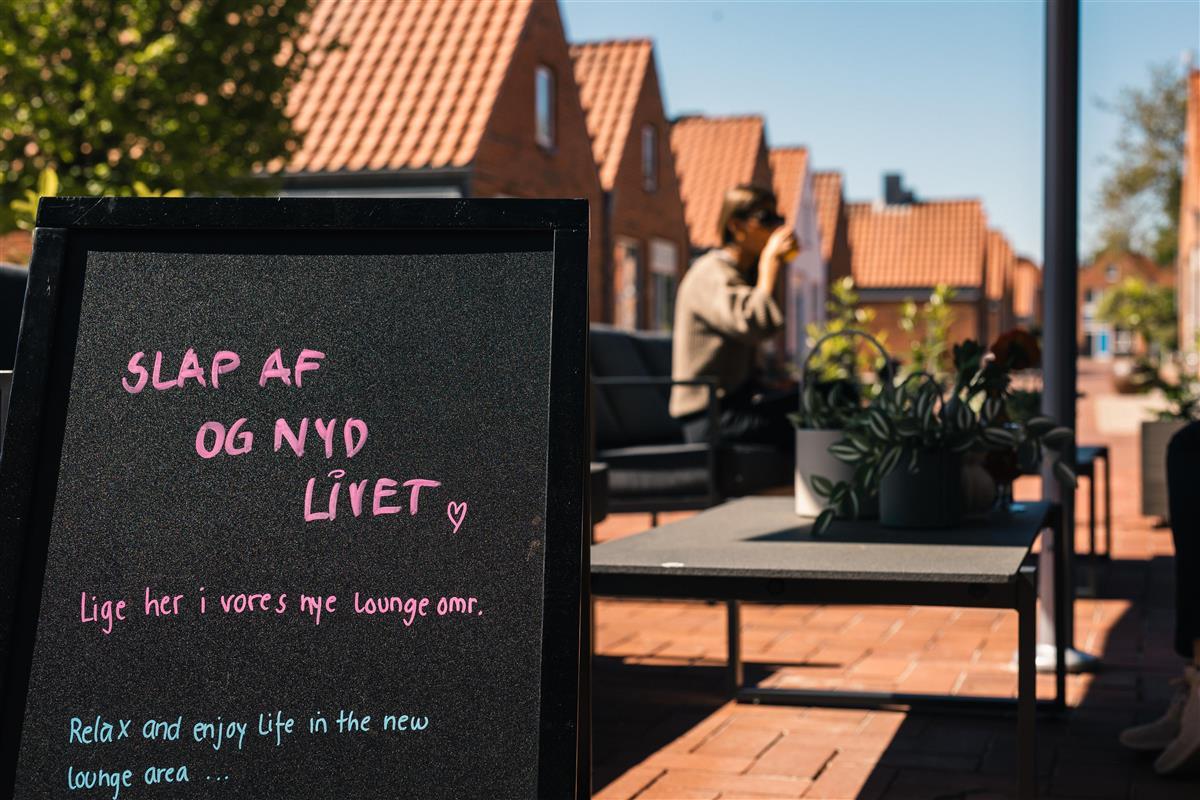 SLAP AF
OG NYD
LIVET ♡
Lige her i vores nye lounge omr.
Relax and enjoy life in the new
lounge area ...